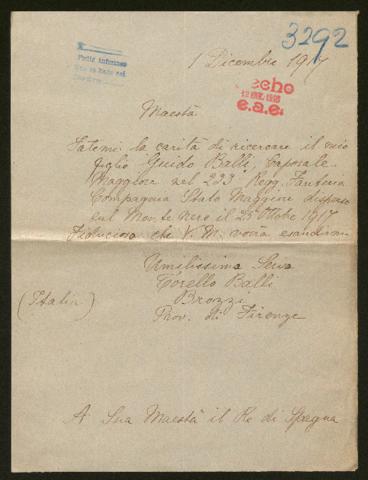 3292
Pedir informes
1 Dicembre 1917
hecho
12 ENE. 1918
e.a.e.
Maestà
Fatemi la carità di ricercare il mio
figlio Guido Balli, Caporale
Maggiore nel 233 Regg. Fanteria
Compagnia Stato Maggiore disperso
sul Monte Nero il 25 Ottobre 1917
Fiducioso che V. M. vorrà esaudirmi
Umilissimo Servo
Torello Balli
Brozzi
(Italia)
Prov. di Firenze
A Sua Maestà il Re di Spagna